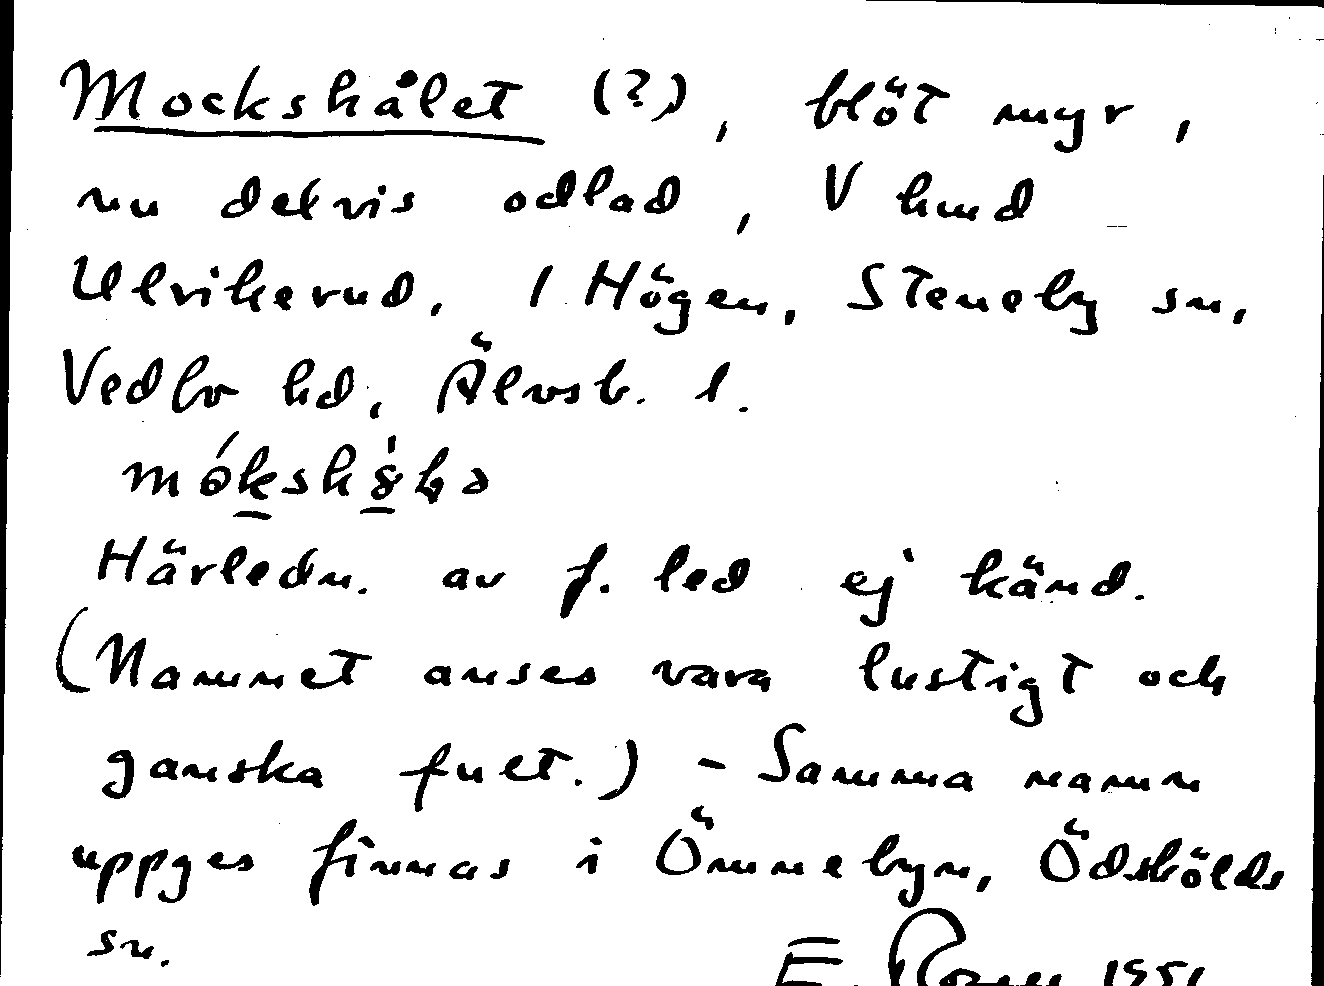 Mockshålet (?), blöt myr,
nu delvis odlad, V hmd
Ulrikerud, 1 Högen, Steneby sn,
Vedbo hd, Älvsb. l.
Härledn. av f. led ej känd.
(Namnet anses vara lustigt och
ganska fult.) - Samma namn
uppges finnas i Ömmebyn, Ödskölds
sn.
E. 1951